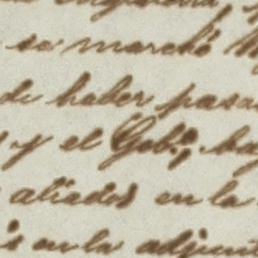 se marchó
de haber pasa
y el Gob.º, hay
aliados en la
en la adjunt